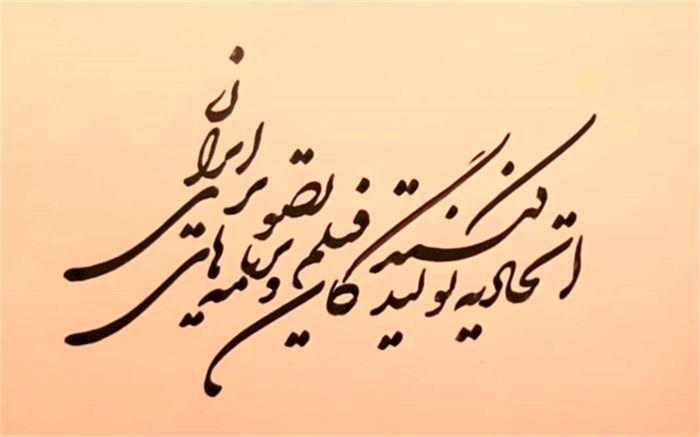 اتحادیه تولیدکنندگان فیلم و برنامه‌های تصویری ایران